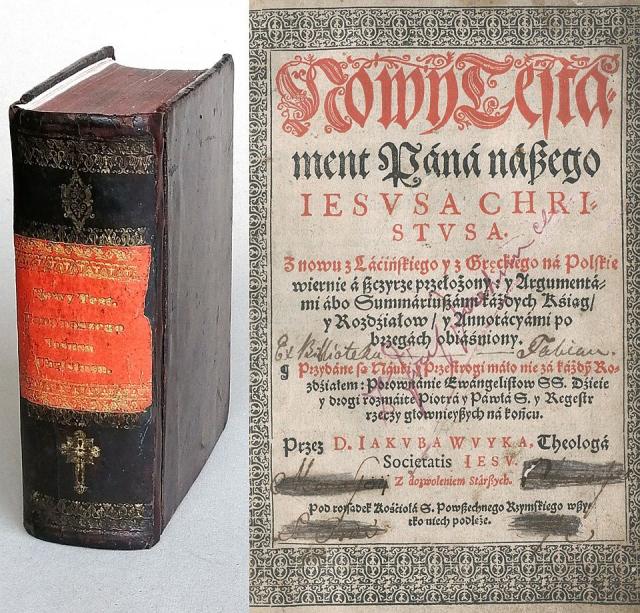 Nowy Test.
Pana naszego
Jezusa
Nowy Testa-
ment Páná nášzego
IESVSA CHRI-
STVSA.
Z nowu z Láćińskiego y z Gręckiego ná Polskie
wiernie á szczyrze przełożony: y Argumentá-
mi ábo Summáriuszámi káżdych Kśiąg/
y Rozdźiałow/ y Annotácyámi po
brzegách obiáśniony.
Ex Bibliotheka Fabian.
Przydáne są Náuki y Przestrogi máło nie zá káżdym Ro-
zdźiałem: Porownánie Ewángelistow SS. Dźieie
y drogi rozmáite Piotrá y Páwłá S. y Regestr
rzeczy głownieyszych ná końcu.
Przez D. IAKVBA WVYKA, Theologá
Societatis IESV.
Z dozwoleniem Stárszych.
Pod rozsądek Kośćiołá S. Powszechnego Rzymskiego wszy-
tko niech podleże.